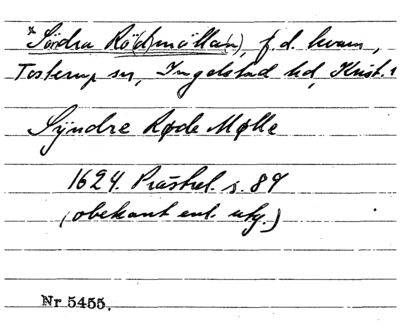 *Södra Rö(d)möllan), f.d. kvarn,
Tosterup sn, Ingelstad hd, Krist. l
Syndre Røde Mølle
1624. Präsrel. s. 87
(obekant enl. utg.)
Nr 5455.